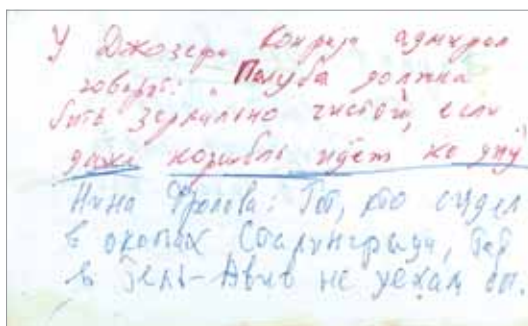 У Джозефа Конрада адмирал
говорит: „Палуба должна
быть зеркально чистой, если
даже корабль идёт ко дну
Нина Фролова: Тот, кто сидел
в окопах Сталинграда, тот
в Тель-Авив не уехал бы.